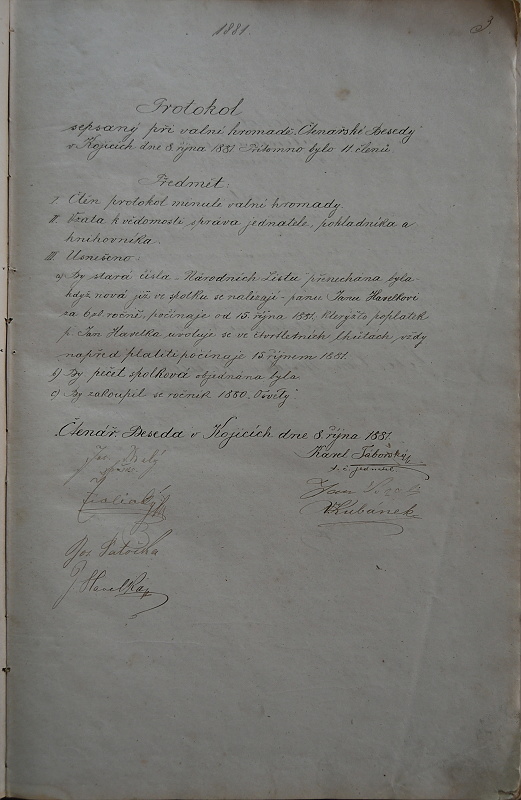 1881.
3.
Protokol
sepsaný při valní hromadě „Čtenářské Besedy“
v Kojicích dne 8. října 1881. Přítomno bylo 11. členů
Předmět:
I. Čtěn protokol minulé valní hromady.
II. Vzata k vědomosti správa jednatele, pokladníka a
knihovníka.
III. Usneseno:
a) By stará čísla „Národních Listů“ přenechána byla
když nová již ve spolku se nalezají – panu Janu Havelkovi
za 6 zl. roční, počínaje od 15. října 1881. Kterýžto poplatek
p. Jan Havelka uvoluje se ve čtvrtletních lhůtách, vždy
napřed platiti počínaje 15. říjnem 1881.
b) By pečeť spolková objednána byla.
c) By zakoupil se ročník 1880. „Osvěty“
„Čtenář. Beseda“ v Kojicích dne 8. října 1881.
Jos. Bílý
Karel Táborský
t. č. jednatel.
Jan
V. Kubánek
Jos. Patočka
J. Havelka